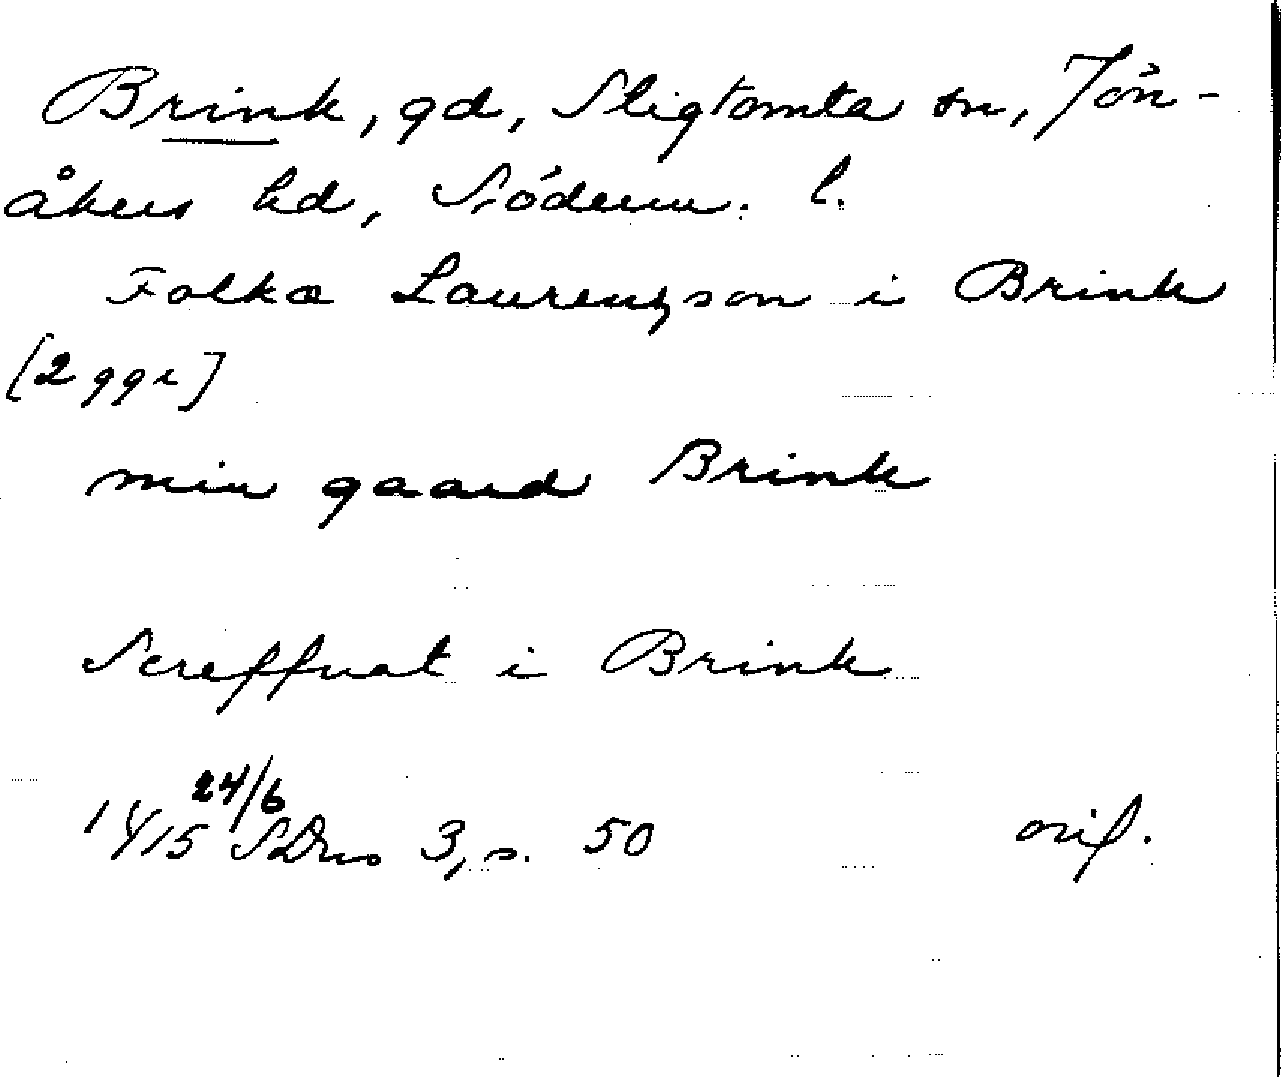 Brink, gd, Sligtomta sn, Jön-
åkers hd, Söderm. l.
Folka Laurenzson i Brink
[2 ggr]
min gaard Brink
Screffuat i Brink
1415 24/6 SDns 3, s. 50 orig.